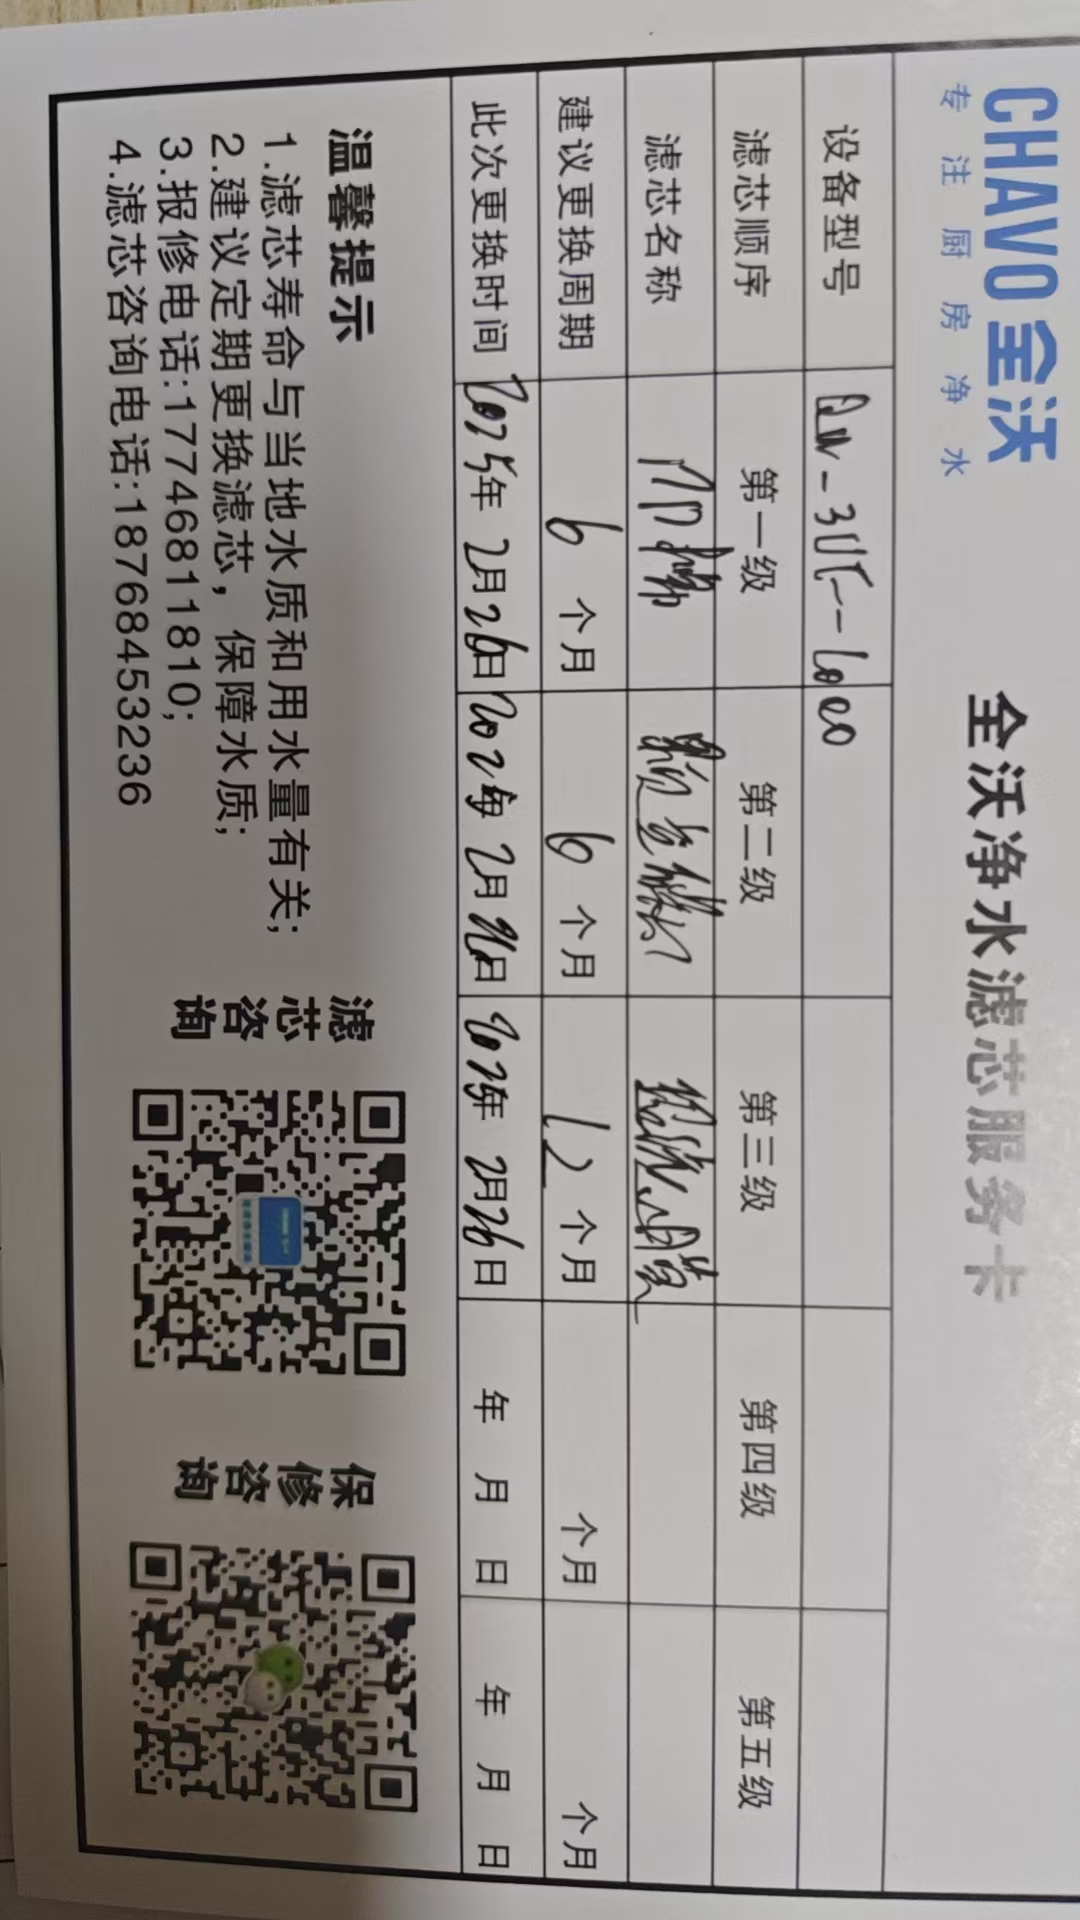 CHAVO全沃
专注厨房净水
全沃净水滤芯服务卡
设备型号
滤芯顺序 第一级 第二级 第三级 第四级 第五级
滤芯名称
建议更换周期 6个月 6个月 12个月 个月 个月
此次更换时间 2025年2月26日 2025年2月26日 2025年2月26日 年 月 日 年 月 日
温馨提示
1.滤芯寿命与当地水质和用水量有关;
2.建议定期更换滤芯，保障水质;
3.报修电话:17746811810;
4.滤芯咨询电话:18768453236
滤芯咨询
保修咨询